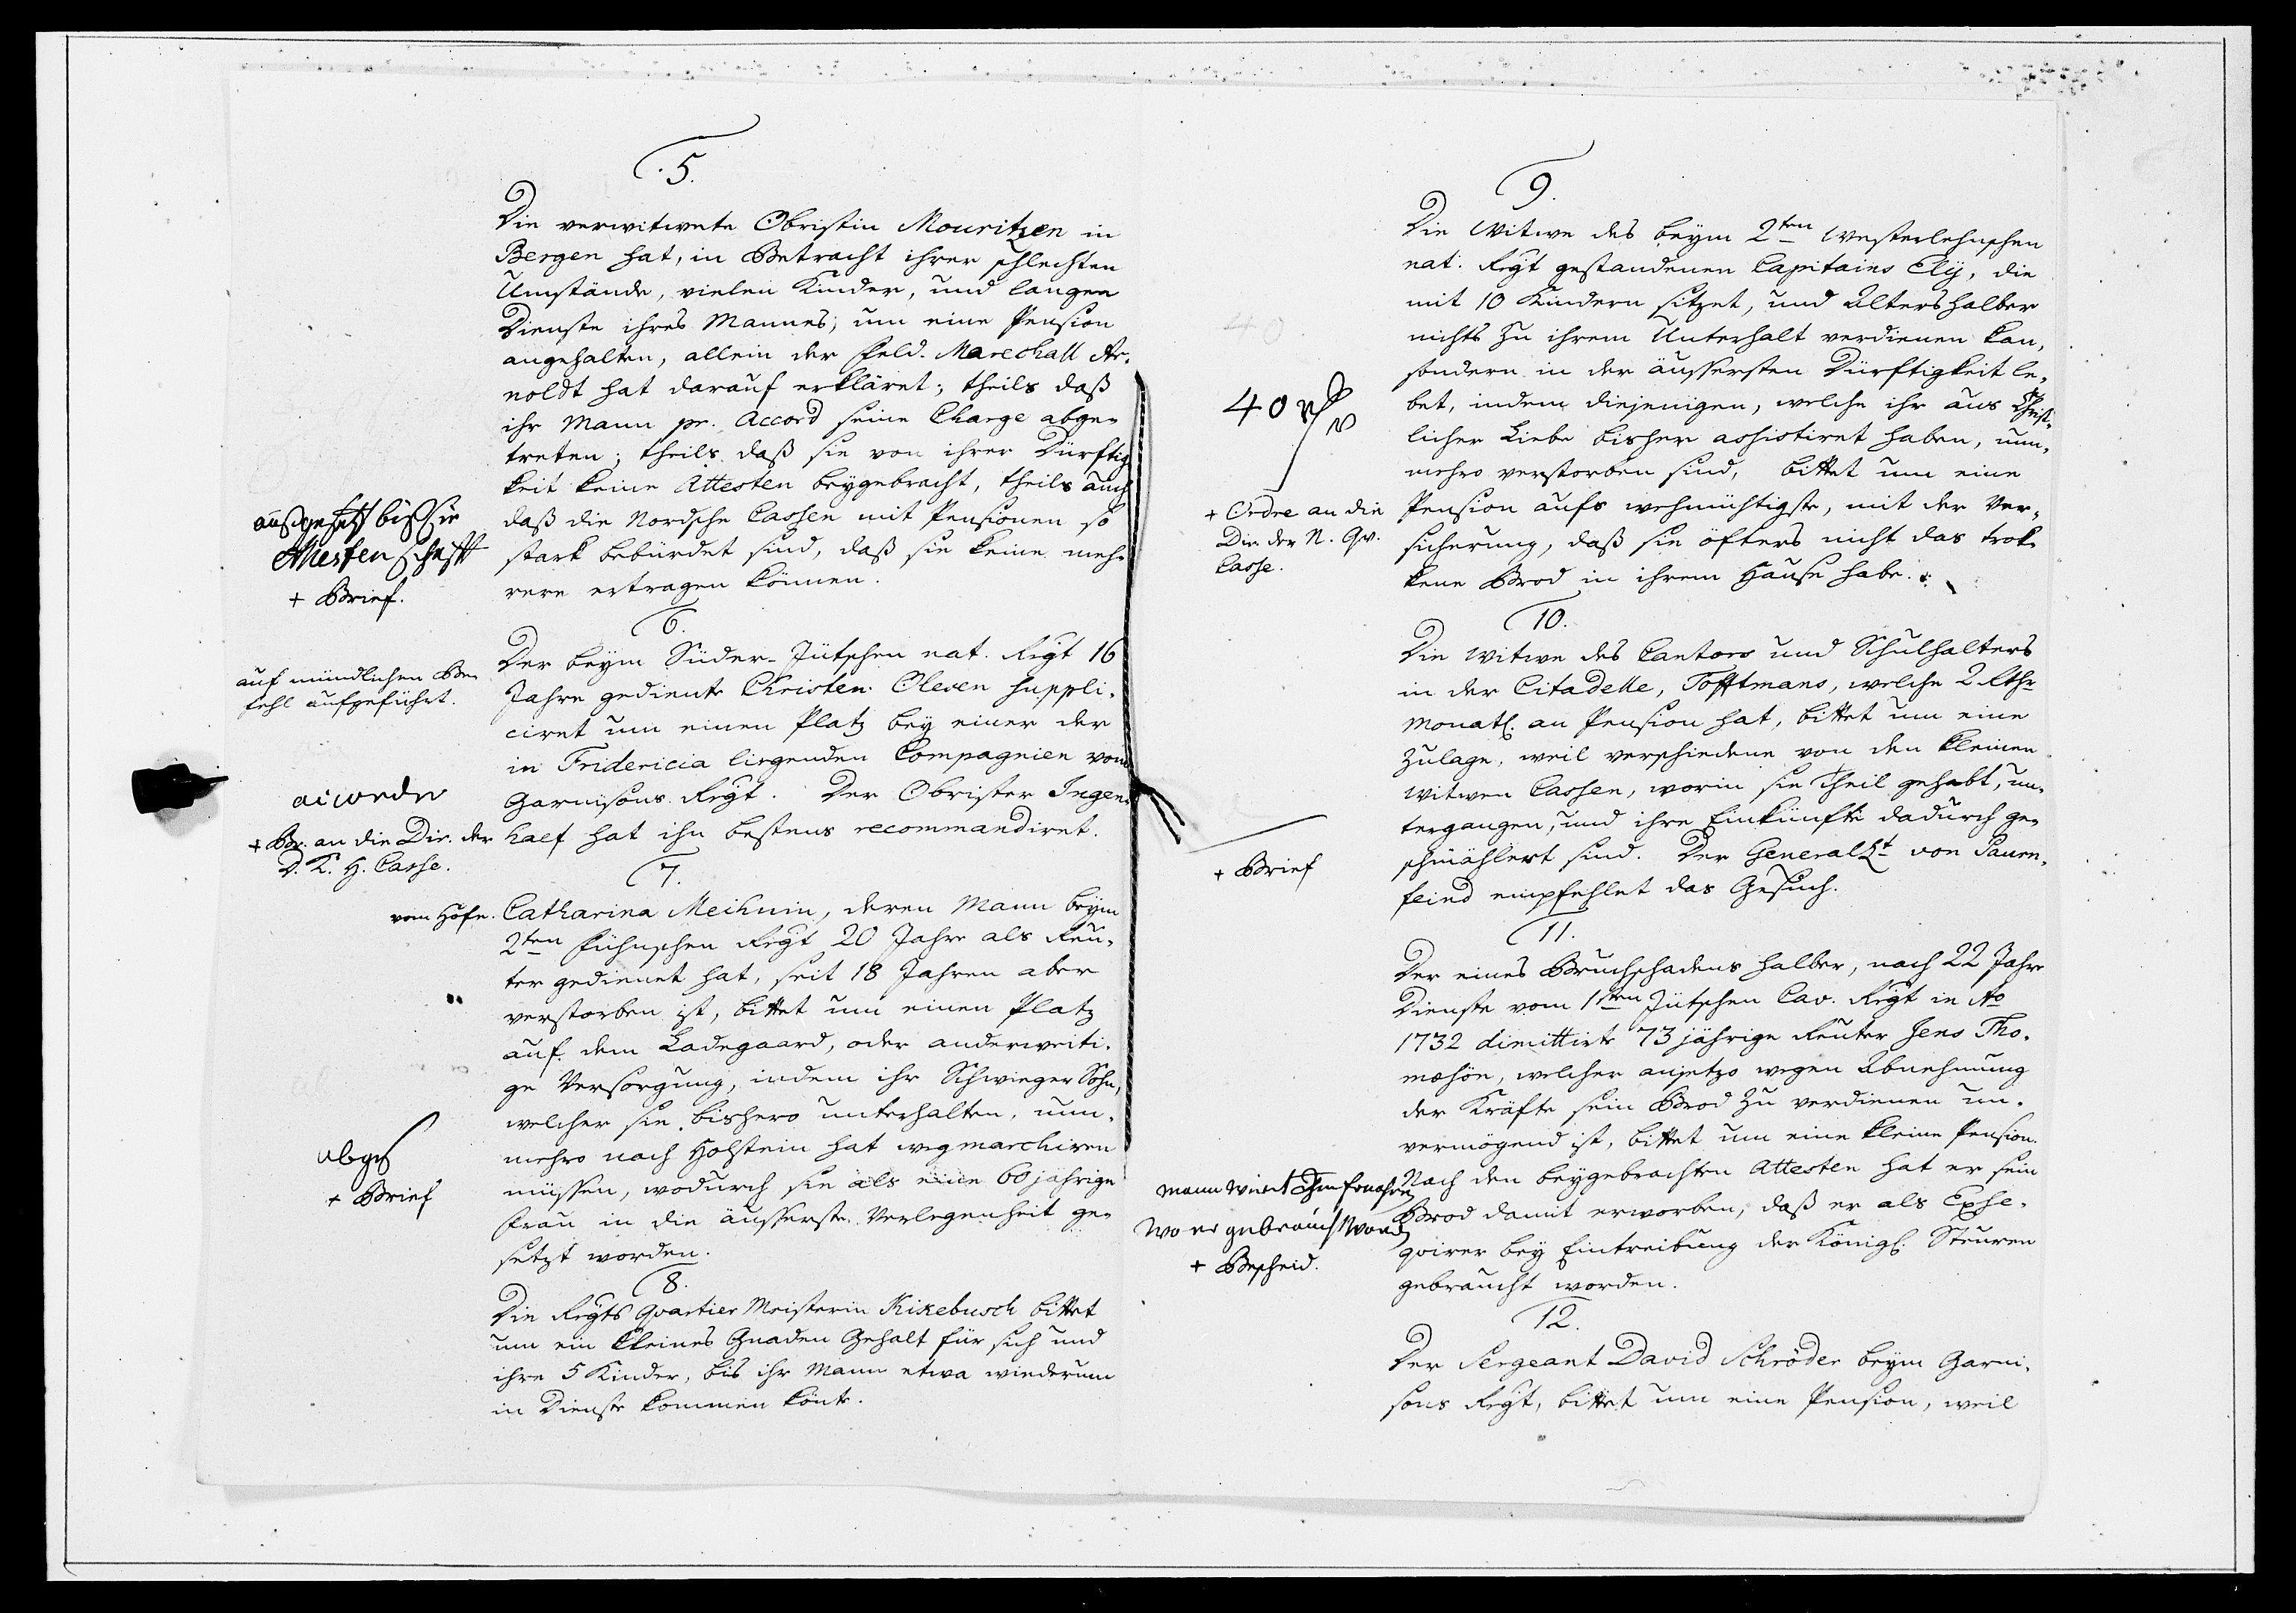 5.
Die verwitwete Obristin Mouritzen in
Bergen hat, in Betracht ihrer schlechten
Umstände, vielen Kinder, und langen
Dienste ihres Mannes, um eine Pension
angehalten, allein der Feld-Marechall Ar-
noldt hat darauf erkläret; theils daß
ihr Mann pr. Accord seine Charge abge-
treten; theils daß sie von ihrer Dürftig
keit keine Attesten beygebracht, theils auch
daß die Nordsche Cassen mit Pensionen so
stark bebürdet sind, daß sie keine meh-
rere ertragen können.
außgesetzt biß sie
Attesten schafft
+ Brief.
6.
Der beym Süder-Jütschen nat. Regt 16
Jahre gediente Christen Olesen suppli-
ciret um einen Platz bey einer der
in Fridericia liegenden Compagnien vom
Garnisons Regt. Der Obrister Ingen-
haef hat ihn bestens recommandiret.
auf mündlichen Be-
fehl aufgeführt.
+ Br. an die Dir. der
D. K. H. Casse.
7.
vom Hofe.
Catharina Meihuin, deren Mann beym
2ten Fühnschen Regt 20 Jahre als Reu-
ter gedienet hat, seit 18 Jahren aber
verstorben ist, bittet um einen Platz
auf dem Ladegaard, oder anderweiti-
ge Versorgung, indem ihr Schwieger Sohn,
welcher sie bishero unterhalten, nun-
mehro nach Holstein hat weg marchiren
müssen, wodurch sie als eine 60 jährige
Frau in die äusserste Verlegenheit ge-
setzt worden.
abges
+ Brief
8.
Die Regts Qvartier Meisterin Kikebusch bittet
um ein kleines Gnaden Gehalt für sich und
ihre 5 Kinder, bis ihr Mann etwa wiederum
in Dienste kommen könte.
9.
Die Witwe des beym 2ten Westerlehnschen
nat. Regt gestandenen Capitains Ely, die
mit 10 Kindern sitzet, und Alters halber
nichts zu ihrem Unterhalt verdienen kan,
sondern in der äussersten Dürftigkeit le-
bet, indem diejenigen, welche ihr aus Christ-
licher Liebe bisher assistiret haben, nun-
mehro verstorben sind, bittet um eine
Pension aufs wehmüthigste, mit der Ver-
sicherung, daß sie öfters nicht das trok-
kene Brod in ihrem Hause habe.
40
+ Ordre an die
Dir. der N. Qv.
Casse.
10.
Die Witwe des Cantors und Schulhalters
in der Citadelle, Tofftmans, welche 2 Rthr
Monatl. an Pension hat, bittet um eine
Zulage, weil verschiedene von den kleinen
Witwen Cassen, worin sie Theil gehabt, un-
tergangen, und ihre Einkünfte dadurch ge-
schmählert sind. Der General Lt von Pauen-
feind empfehlet das Gesuch.
+ Brief
11.
Der eines Bruchschadens halber, nach 22 Jahr
Dienste vom 1sten Jütschen Cav. Regt in Ao
1732 dimittirte 73 jährige Reuter Jens Tho-
mæsön, welcher anjetzo wegen Abnehmung
der Kräfte sein Brod zu verdienen un-
vermögend ist, bittet um eine kleine Pension.
Nach den beygebrachten Attesten hat er sein
Brod damit erworben, daß er als Exse-
qvirer bey Eintreibung der Königl. Steuren
gebraucht worden.
wo er gebraucht word
+ Bescheid.
12.
Der Sergeant David Schröder beym Garni-
sons Regt, bittet um eine Pension, weil